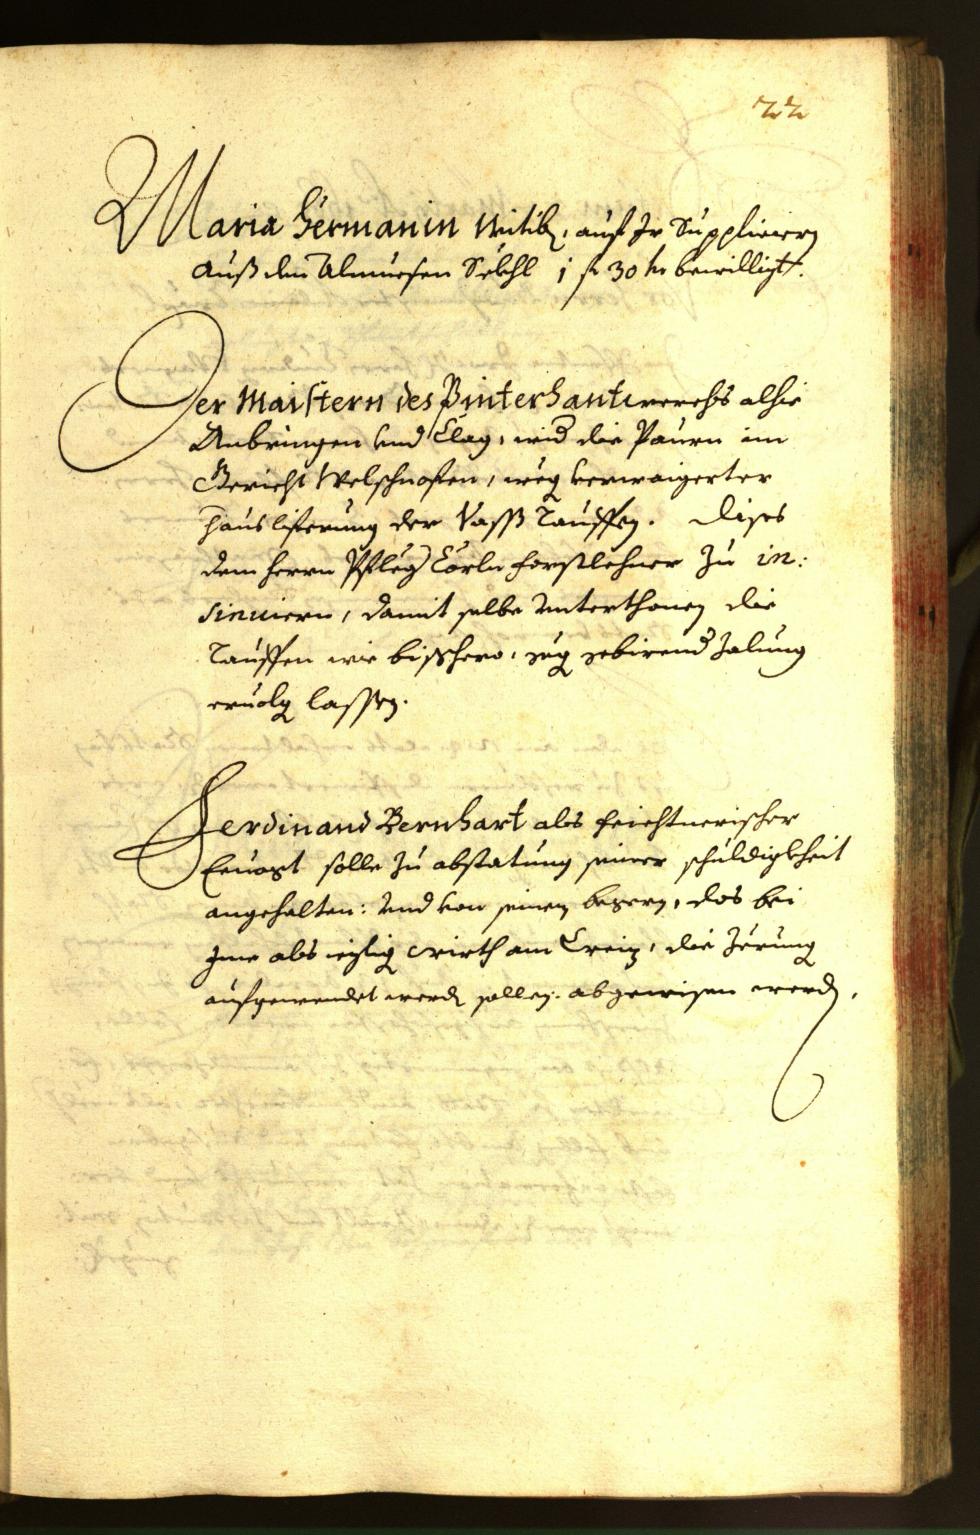 22
Maria Germanin Witib, auf Ir Suppliciern
auß dem Almuesen Sëckhl 1 f 30 kr bewilligt.
Der Maistern des Pinterhantwerchs alhie
Anbringen und Clag, wid die Paurn im
Gericht Welschnofen, weg verwaigerter
Hausliferung der Vaßß Tauffen. Dises
dem herrn Pfleg Carln Forstlehner zu in:
sinuiern, damit selbe Unterthonen die
Tauffen wie bisshero, geg gebirend Zalung
ervolg lassen.
Ferdinand Bernhart als Feichtnerischer
solle zu abstatung seiner schuldigkheit
angehalten: Und von seinem begern, das bei
Ime als iezig Wirth am Creiz, die Zerung
aufgewendet werd sollen: abgewisen werd.